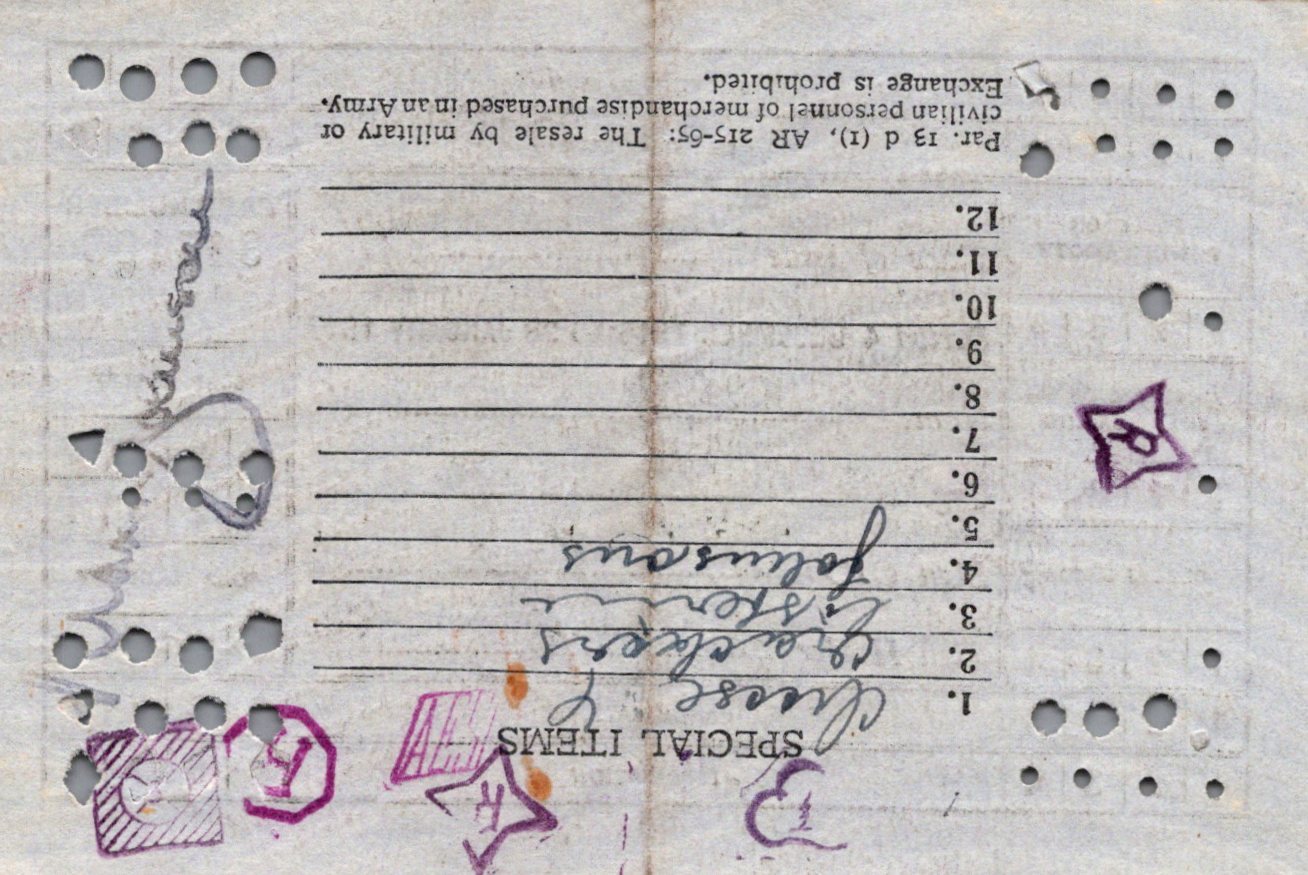 SPECIAL ITEMS
1. Cheese
2. Crackers
3. Listerine
4. Johnsons
5.
6.
7.
8.
9.
10.
11.
12.
Par. 13 d (1), AR 215-65: The resale by military or
civilian personnel of merchandise purchased in an Army.
Exchange is prohibited.
R
H